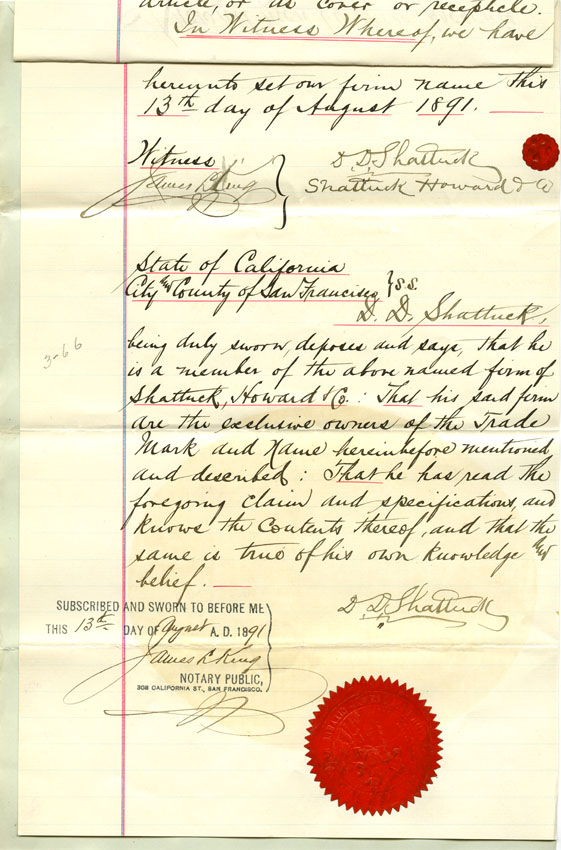 article, or as cover or recepticle.
In Witness Whereof, we have
hereunto set our firm name this
13th day of August 1891.
Witness
James L King
D. D. Shattuck
Shattuck Howard & Co
State of California
City and County of San Francisco } S.S.
D. D. Shattuck,
being duly sworn, deposes and says, that he
is a member of the above named firm of
Shattuck, Howard & Co. : That his said firm
are the exclusive owners of the Trade
Mark and Name hereinbefore mentioned
and described : That he has read the
foregoing claim and specifications, and
knows the Contents thereof, and that the
same is true of his own knowledge and
belief.
3-66
D. D. Shattuck
SUBSCRIBED AND SWORN TO BEFORE ME
THIS 13th DAY OF August A. D. 1891
James L King
NOTARY PUBLIC,
308 CALIFORNIA ST., SAN FRANCISCO.